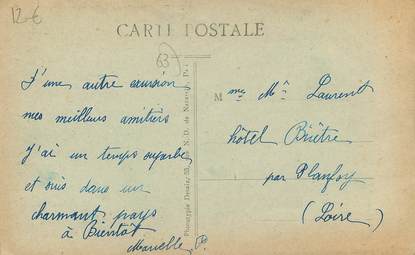 12 €
CARTE POSTALE
63
J'une autre excursion
mes meilleurs amitiés
j'ai un temps superbe
et suis dans un
charmant pays
à Bientôt
Marcelle P.
Mme Mr Laurent
hôtel
par Planfoy
(Loire)
Phototypie Desaix